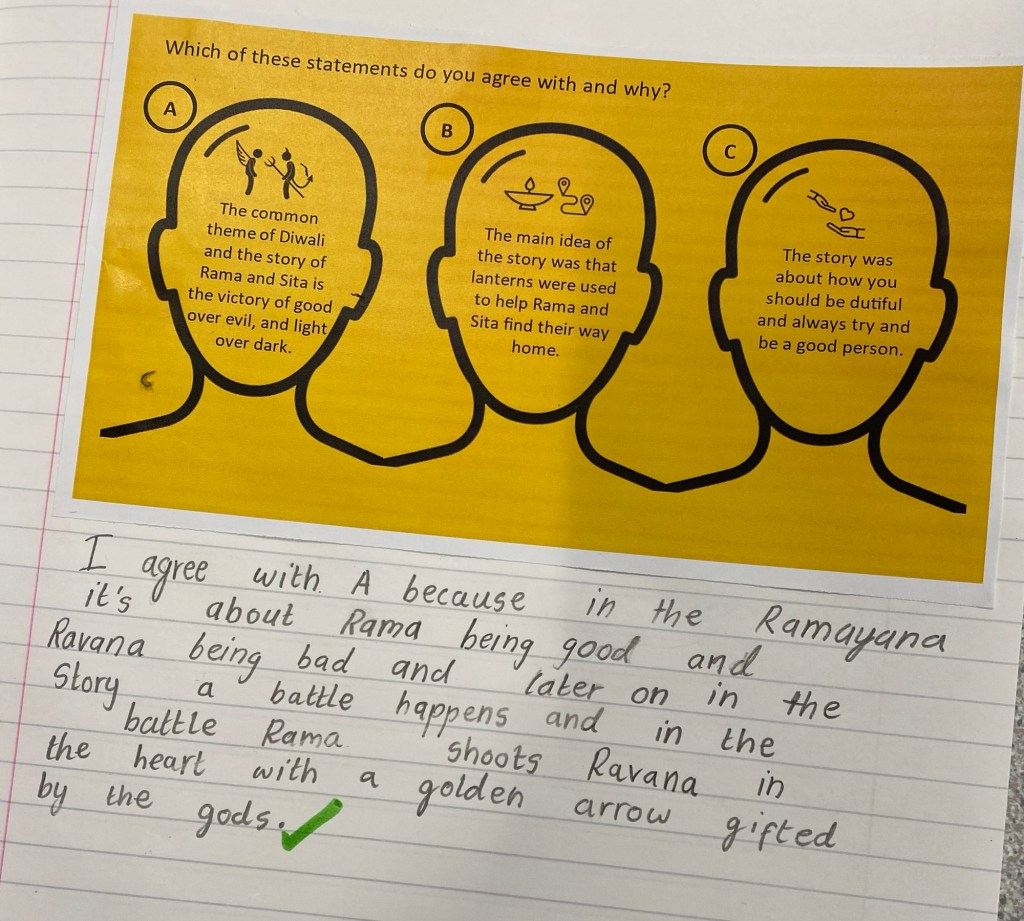 Which of these statements do you agree with and why?
A
The common
theme of Diwali
and the story of
Rama and Sita is
the victory of good
over evil, and light
over dark.
B
The main idea of
the story was that
lanterns were used
to help Rama and
Sita find their way
home.
C
The story was
about how you
should be dutiful
and always try and
be a good person.
I agree with A because in the Ramayana
it's about Rama being good and
Ravana being bad and later on in the
Story a battle happens and in the
battle Rama shoots Ravana in
the heart with a golden arrow gifted
by the gods.